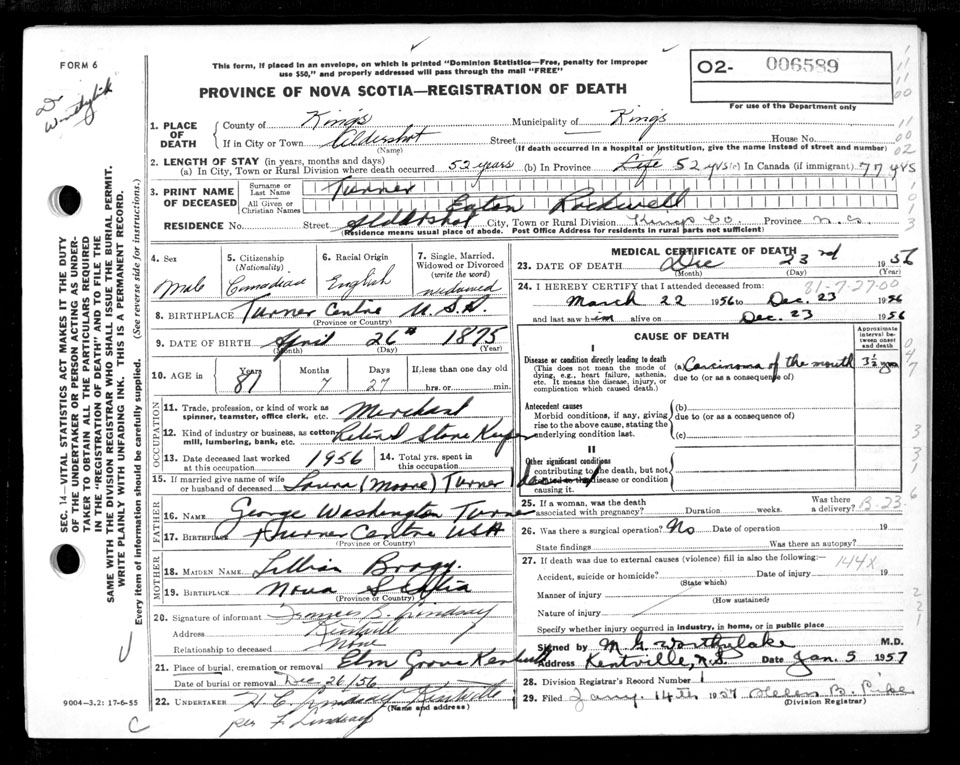 FORM 6
This form, if placed in an envelope, on which is printed "Dominion Statistics—Free, penalty for improper
use $50," and properly addressed will pass through the mail "FREE"
02- 006589
For use of the Department only
PROVINCE OF NOVA SCOTIA—REGISTRATION OF DEATH
1. PLACE OF DEATH
County of Kings Municipality of Kings
If in City or Town Aldershot Street House No.
(Name) (If death occurred in a hospital or institution, give the name instead of street and number)
2. LENGTH OF STAY (in years, months and days)
(a) In City, Town or Rural Division where death occurred 52 years (b) In Province Life 52 yrs (c) In Canada (if immigrant) 77 yrs
3. PRINT NAME OF DECEASED
Surname or Last Name Turner
All Given or Christian Names Rockwell
RESIDENCE No. Street Aldershot City, Town or Rural Division Kings Co. Province N.S.
(Residence means usual place of abode. Post Office Address for residents in rural parts not sufficient)
4. Sex
Male
5. Citizenship (Nationality)
Canadian
6. Racial Origin
English
7. Single, Married, Widowed or Divorced (write the word)
widowed
8. BIRTHPLACE Turner Centre U.S.A.
(Province or Country)
9. DATE OF BIRTH April 26th 1875
(Month) (Day) (Year)
10. AGE in Years Months Days If less than one day old
81 7 27 hrs. or min.
OCCUPATION
11. Trade, profession, or kind of work as
spinner, teamster, office clerk, etc. Merchant
12. Kind of industry or business, as cotton
mill, lumbering, bank, etc. Retired Store Keeper
13. Date deceased last worked at this occupation 1956
14. Total yrs. spent in this occupation
15. If married give name of wife
or husband of deceased Laura (Moore) Turner
FATHER
16. NAME George Washington Turner
17. BIRTHPLACE Turner Centre USA
(Province or Country)
MOTHER
18. MAIDEN NAME Lillian Bragg
19. BIRTHPLACE Nova Scotia
(Province or Country)
20. Signature of informant Lindsay
Address Kentville
Relationship to deceased None
21. Place of burial, cremation or removal Elm Grove Kentville
Date of burial or removal Dec 26/56
22. UNDERTAKER H C Lindsay Kentville
(Name and address)
per F Lindsay
9004—3.2: 17-6-55
C
MEDICAL CERTIFICATE OF DEATH
23. DATE OF DEATH Dec 23rd 1956
(Month) (Day) (Year)
31-7-27-00
24. I HEREBY CERTIFY that I attended deceased from:
March 22 1956 to Dec. 23 1956
and last saw him alive on Dec. 23 1956
CAUSE OF DEATH
Approximate interval between onset and death
I
Disease or condition directly leading to death
(This does not mean the mode of dying, e.g., heart failure, asthenia, etc. It means the disease, injury, or complication which caused death.)
(a) Carcinoma of the mouth 3½ yrs
due to (or as a consequence of)
Antecedent causes
Morbid conditions, if any, giving rise to the above cause, stating the underlying condition last.
(b)
due to (or as a consequence of)
(c)
II
Other significant conditions
contributing to the death, but not related to the disease or condition causing it.
25. If a woman, was the death associated with pregnancy? Duration weeks. Was there a delivery? B-23
26. Was there a surgical operation? No Date of operation 19
State findings Was there an autopsy?
27. If death was due to external causes (violence) fill in also the following:—
144X
Accident, suicide or homicide? Date of injury 19
(State which)
Manner of injury
(How sustained)
Nature of injury
Specify whether injury occurred in industry, in home, or in public place
Signed by M. G. Worthylake M.D.
Address Kentville, N.S. Date Jan. 5 1957
28. Division Registrar's Record Number 1
29. Filed Jany. 14th 1957 Helen B. Pike
(Division Registrar)
SEC. 14—VITAL STATISTICS ACT MAKES IT THE DUTY
OF THE UNDERTAKER OR PERSON ACTING AS UNDER-
TAKER TO OBTAIN ALL THE PARTICULARS REQUIRED
IN THE "REGISTRATION OF DEATH" AND TO FILE THE
SAME WITH THE DIVISION REGISTRAR WHO SHALL ISSUE THE BURIAL PERMIT.
WRITE PLAINLY WITH UNFADING INK. THIS IS A PERMANENT RECORD.
Every item of information should be carefully supplied. (See reverse side for instructions.)